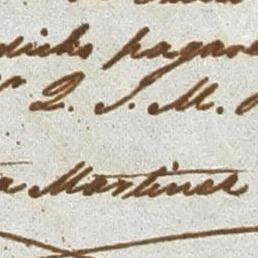 dicho pagaré
Q. S. M.
Martinez